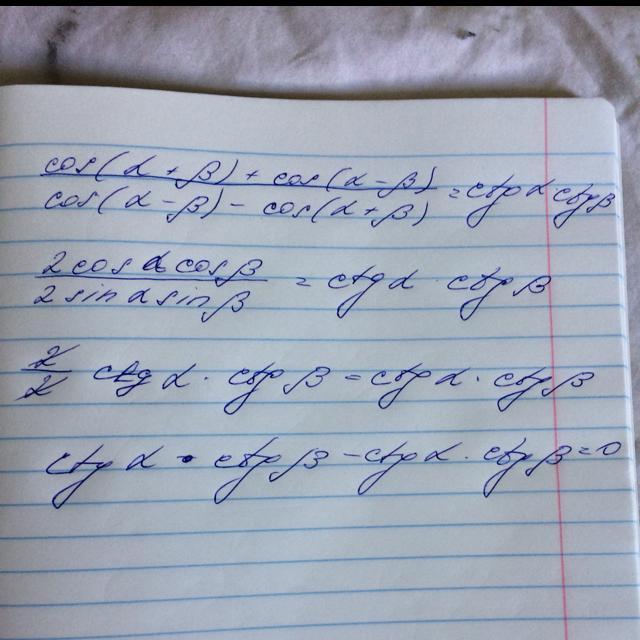 cos(α + β) + cos(α - β) / cos(α - β) - cos(α + β) = ctg α · ctg β
2 cos α cos β / 2 sin α sin β = ctg α · ctg β
2/2 ctg α · ctg β = ctg α · ctg β
ctg α · ctg β - ctg α · ctg β = 0